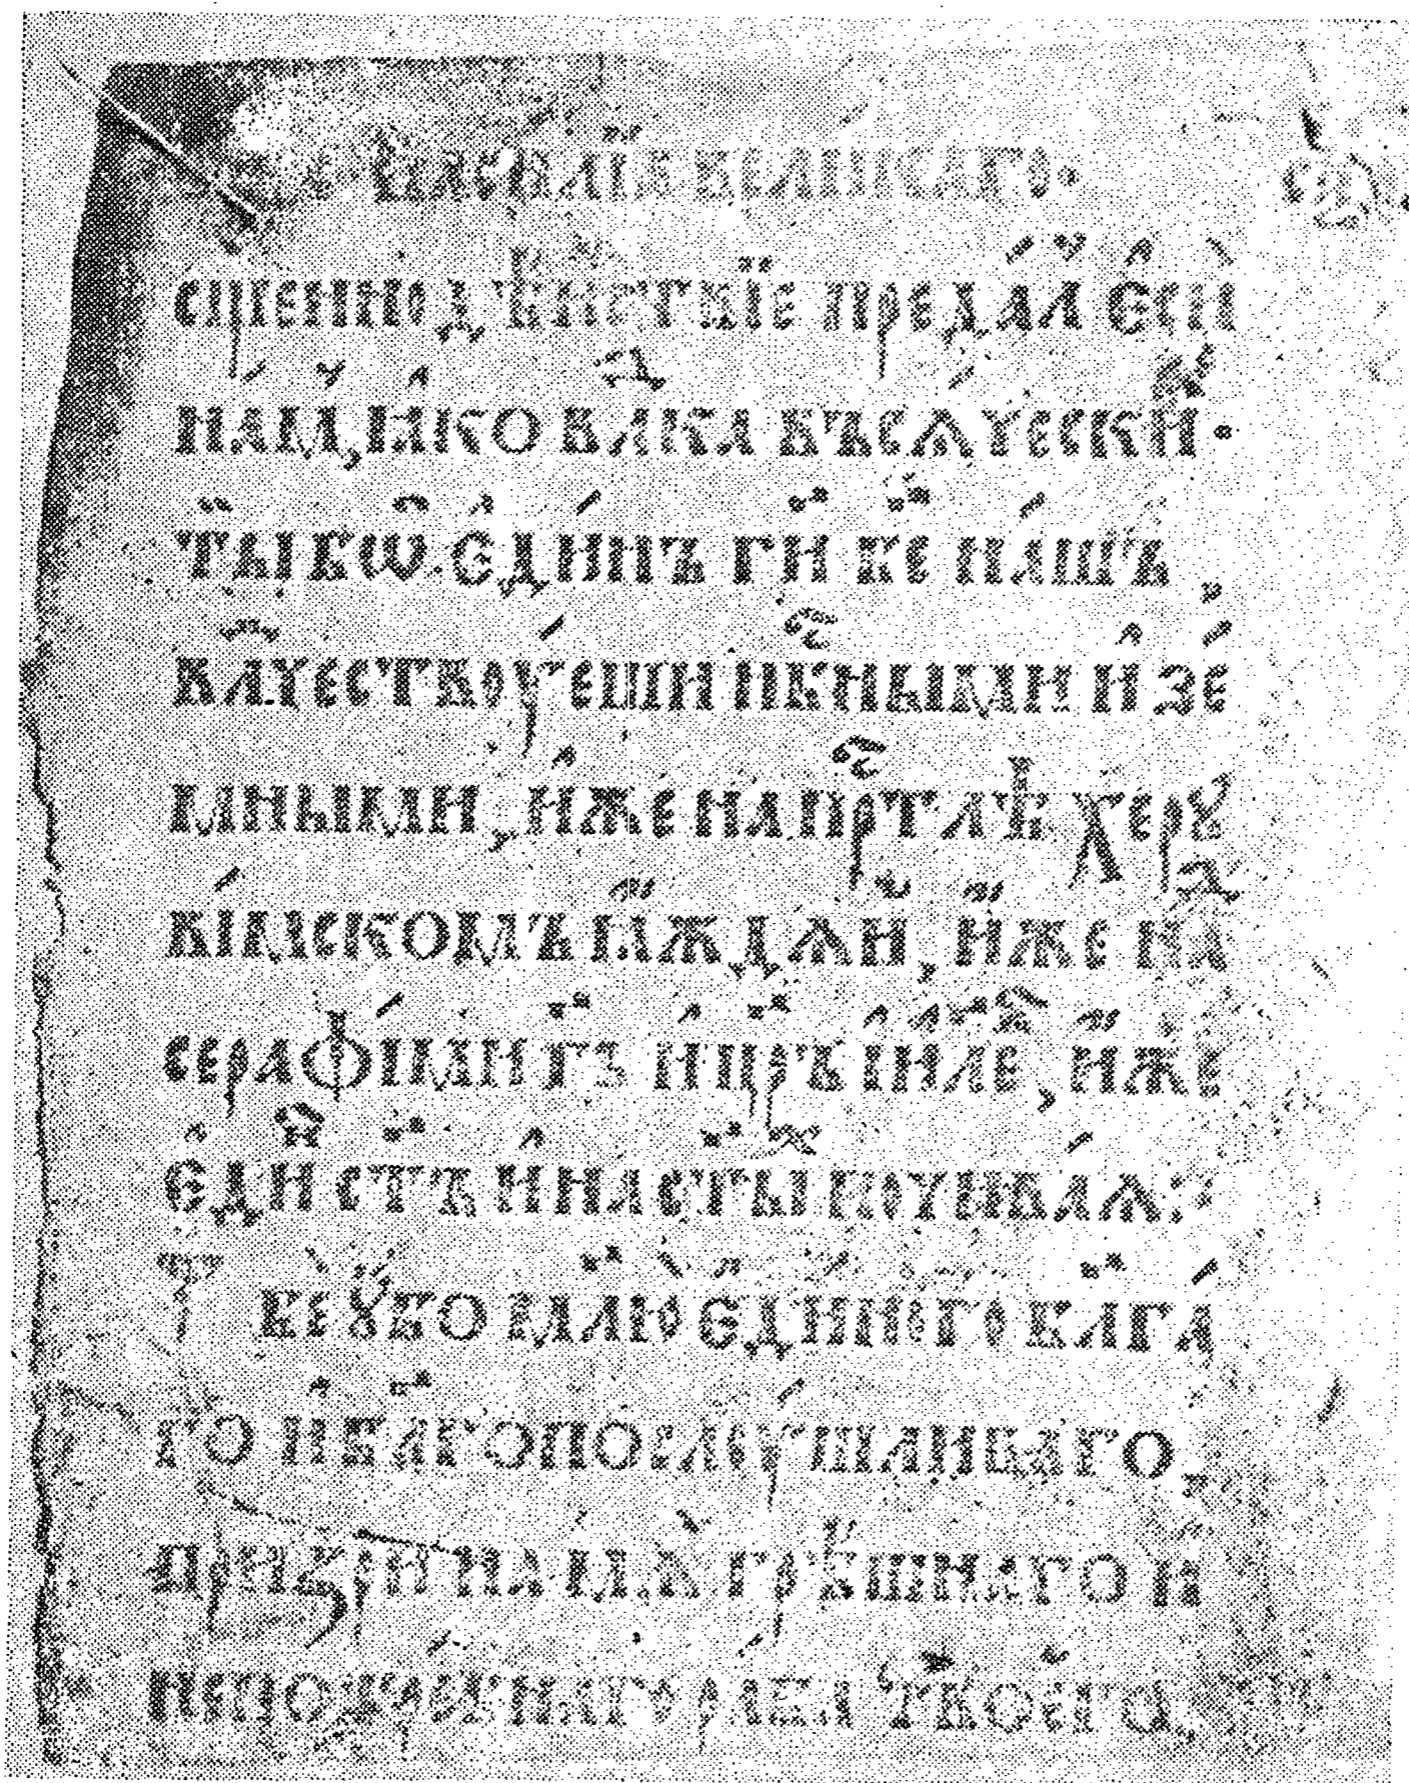 василїе великаго·
сщеннодѣйствїе предал̾ еси
намь, ꙗко влⷣка въсѧчески·
ты бѡ єдинъ ги бе нашъ
влⷣчествоуеши нбⷭными и зе
мными, иже на прⷭтлѣ херꙋ
вімскомъ ꙗждⷣѧи, иже на
серафими гъ и црь ілеⷡ, иже
єдиⷩ стъ и на стыⷯ почиваѧ:
Т бе ꙋбо молю єдинаго блга
го и благопослоушливаго,
призри на мѧ грѣшнаго и
непотрѣбнаго раба твоего,